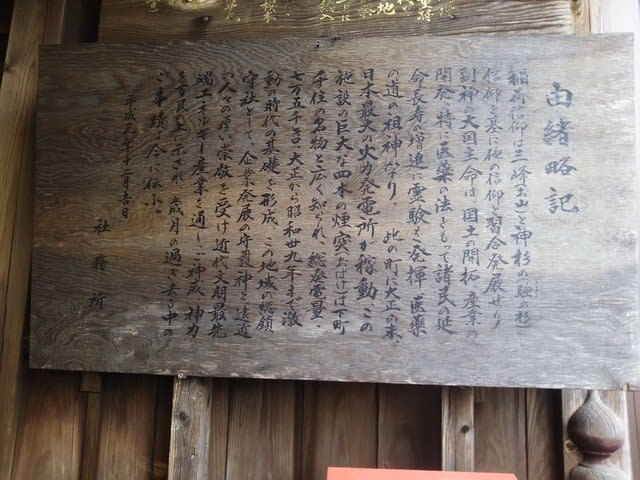 由緒略記
稲荷信仰は三峰お山と神杉の験の杉
信仰を基に他の信仰と習合発展せり
副神の大国主命は国土の開拓、産業の
開発、特に医薬の法をもって諸民の延
命長寿の増進に霊験を発揮、医薬
の道の祖神なり、此の町に大正の末、
日本最大の火力発電所が稼動、この
施設の巨大な四本の煙突(おばけ)は下町
千住の名物と広く知られ、総発電量、
七万五千キロ、大正から昭和卅九年まで激
動の時代の基礎を形成、この地域の総鎮
守社として、企業発展の守護神と遠近
の人々の厚い崇敬を受け近代文明最先
端エネルギー産業を通し、ご神威、神力
を万民に示され、歳月の過ぎ去る中の
ご事跡を今に伝ふ。
平成 年十二月吉日
社務所